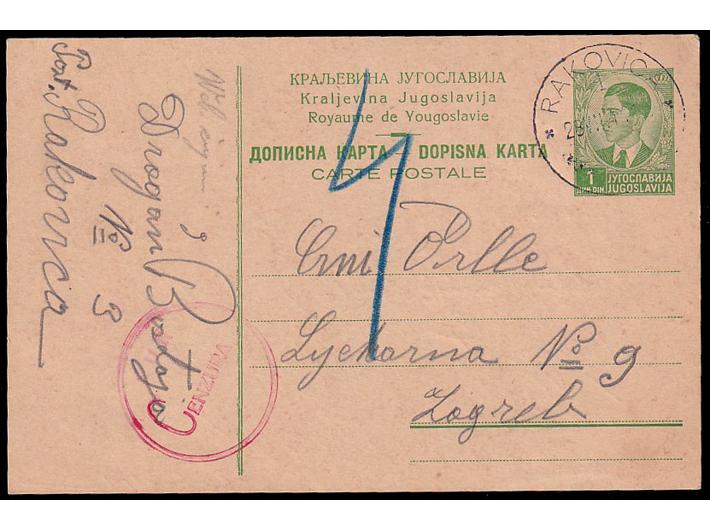 КРАЉЕВИНА ЈУГОСЛАВИЈА
Kraljevina Jugoslavija
Royaume de Yougoslavie
ДОПИСНА КАРТА — DOPISNA KARTA
CARTE POSTALE
RAKOVICA
1
ДИН DIN
ЈУГОСЛАВИЈА
JUGOSLAVIJA
Crni Orlle
Ljekarna No 9
Zagreb
Dragan
No 3
Pošt. Rakovica
CENZURA